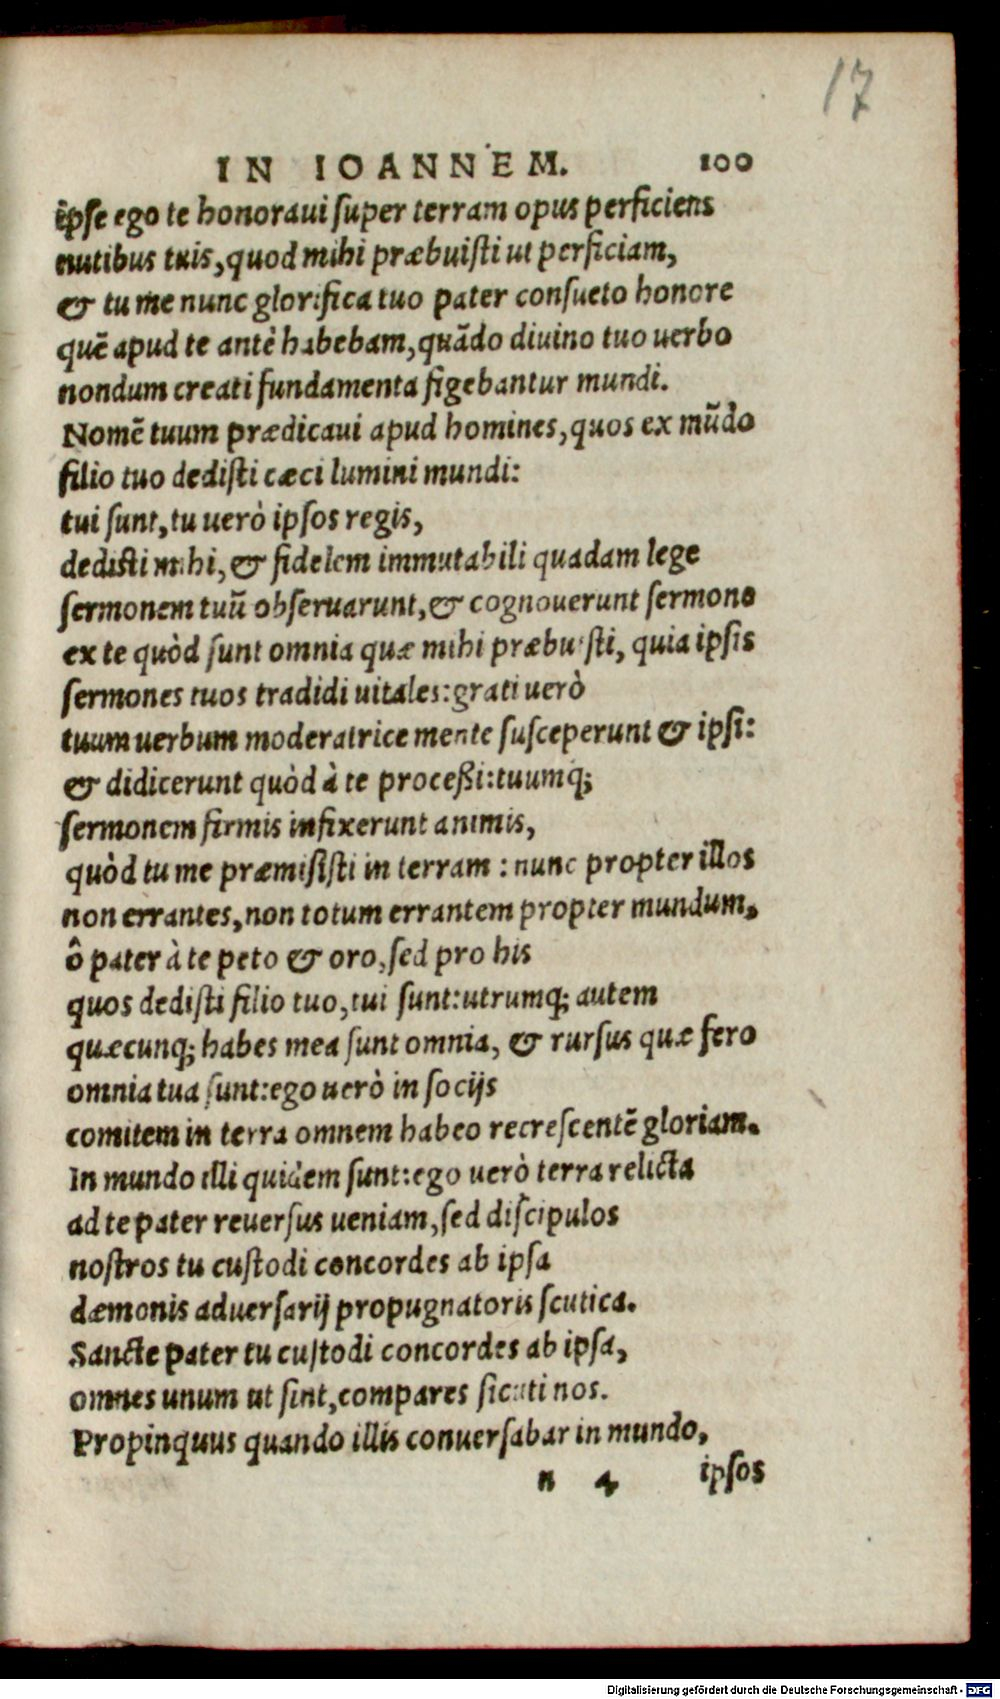 17
IN IOANNEM. 100
ipse ego te honoraui super terram opus perficiens
nutibus tuis, quod mihi præbuisti ut perficiam,
& tu me nunc glorifica tuo pater consueto honore
quē apud te antè habebam, quādo diuino tuo uerbo
nondum creati fundamenta figebantur mundi.
Nomē tuum prædicaui apud homines, quos ex mūdo
filio tuo dedisti cæci lumini mundi:
tui sunt, tu uerò ipsos regis,
dedisti mihi, & fidelem immutabili quadam lege
sermonem tuū obseruarunt, & cognouerunt sermone
ex te quòd sunt omnia quæ mihi præbuisti, quia ipsis
sermones tuos tradidi uitales: grati uerò
tuum uerbum moderatrice mente susceperunt & ipsi:
& didicerunt quòd à te processi: tuumq;
sermonem firmis infixerunt animis,
quòd tu me præmisisti in terram : nunc propter illos
non errantes, non totum errantem propter mundum,
ô pater à te peto & oro, sed pro his
quos dedisti filio tuo, tui sunt: utrumq; autem
quæcunq; habes mea sunt omnia, & rursus quæ fero
omnia tua sunt: ego uerò in socijs
comitem in terra omnem habeo recrescentē gloriam.
In mundo illi quidem sunt: ego uerò terra relicta
ad te pater reuersus ueniam, sed discipulos
nostros tu custodi concordes ab ipsa
dæmonis aduersarij propugnatoris scutica.
Sancte pater tu custodi concordes ab ipsa,
omnes unum ut sint, compares sicuti nos.
Propinquus quando illis conuersabar in mundo,
n 4 ipsos
Digitalisierung gefördert durch die Deutsche Forschungsgemeinschaft - DFG